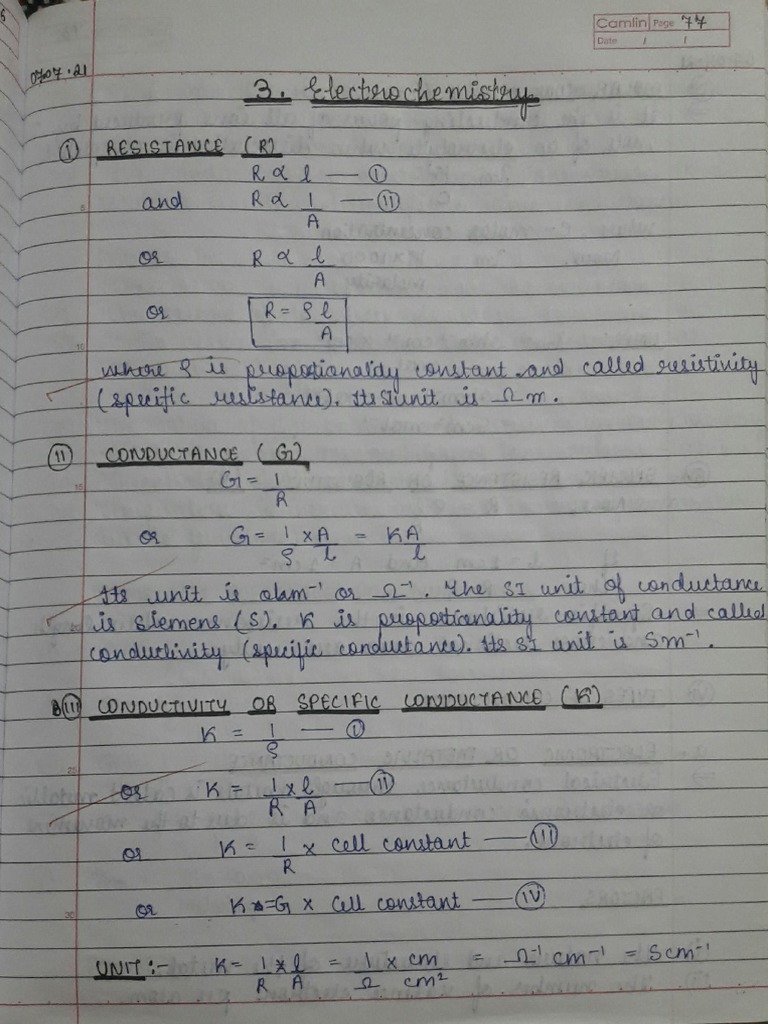 Camlin Page 77
Date / /
07.07.21
3. Electrochemistry
(I) RESISTANCE (R)
R ∝ l — (I)
and R ∝ 1/A — (II)
or R ∝ l/A
or R = ρ l/A
where ρ is proportionality constant and called resistivity
(specific resistance). Its SI unit is Ω m.
(II) CONDUCTANCE (G)
G = 1/R
or G = 1/ρ × A/l = KA/l
Its unit is ohm⁻¹ or Ω⁻¹. The SI unit of conductance
is siemens (S). K is proportionality constant and called
conductivity (specific conductance). Its SI unit is Sm⁻¹.
(III) CONDUCTIVITY OR SPECIFIC CONDUCTANCE (K)
K = 1/ρ — (I)
or K = 1/R × l/A — (II)
or K = 1/R × cell constant — (III)
or K = G × cell constant — (IV)
UNIT :- K = 1/R × l/A = 1/Ω × cm/cm² = Ω⁻¹ cm⁻¹ = S cm⁻¹